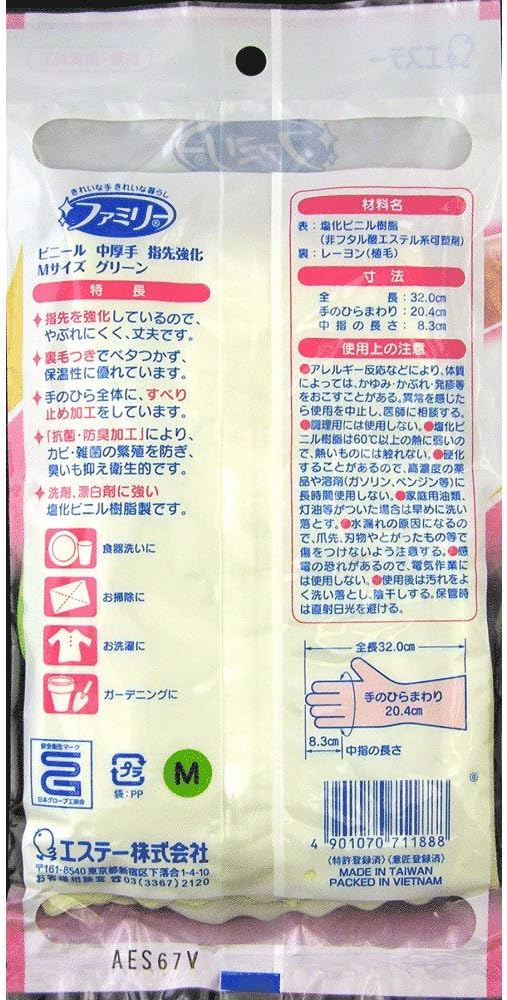 エステー
ファミリー
きれいな手 きれいな暮らし
ファミリー®
ビニール 中厚手 指先強化
Mサイズ グリーン
特長
指先を強化しているので、
やぶれにくく、丈夫です。
裏毛つきでベタつかず、
保温性に優れています。
手のひら全体に、すべり
止め加工をしています。
「抗菌・防臭加工」により、
カビ・雑菌の繁殖を防ぎ、
臭いも抑え衛生的です。
洗剤、漂白剤に強い
塩化ビニル樹脂製です。
食器洗いに
お掃除に
お洗濯に
ガーデニングに
安全衛生マーク
日本グローブ工業会
プラ
袋:PP
M
エステー株式会社
〒161-8540 東京都新宿区下落合1-4-10
お客様相談室 ☎03(3367)2120
材料名
表:塩化ビニル樹脂
(非フタル酸エステル系可塑剤)
裏:レーヨン(植毛)
寸法
全長:32.0cm
手のひらまわり:20.4cm
中指の長さ:8.3cm
使用上の注意
●アレルギー反応などにより、体質
によっては、かゆみ・かぶれ・発疹等
をおこすことがある。異常を感じた
ら使用を中止し、医師に相談する。
●調理用には使用しない。●塩化ビ
ニル樹脂は60℃以上の熱に弱いの
で、熱いものには触れない。●硬化
することがあるので、高濃度の薬
品や溶剤(ガソリン、ベンジン等)に
長時間使用しない。●家庭用油類、
灯油等がついた場合は早めに洗い
落とす。●水漏れの原因になるの
で、爪先、刃物やとがったもの等で
傷をつけないよう注意する。●感
電の恐れがあるので、電気作業に
は使用しない。●使用後は汚れをよ
く洗い落とし、陰干しする。保管時
は直射日光を避ける。
全長32.0cm
手のひらまわり
20.4cm
8.3cm
中指の長さ
®
4 901070 711888
(特許登録済)(意匠登録済)
MADE IN TAIWAN
PACKED IN VIETNAM
AES67V